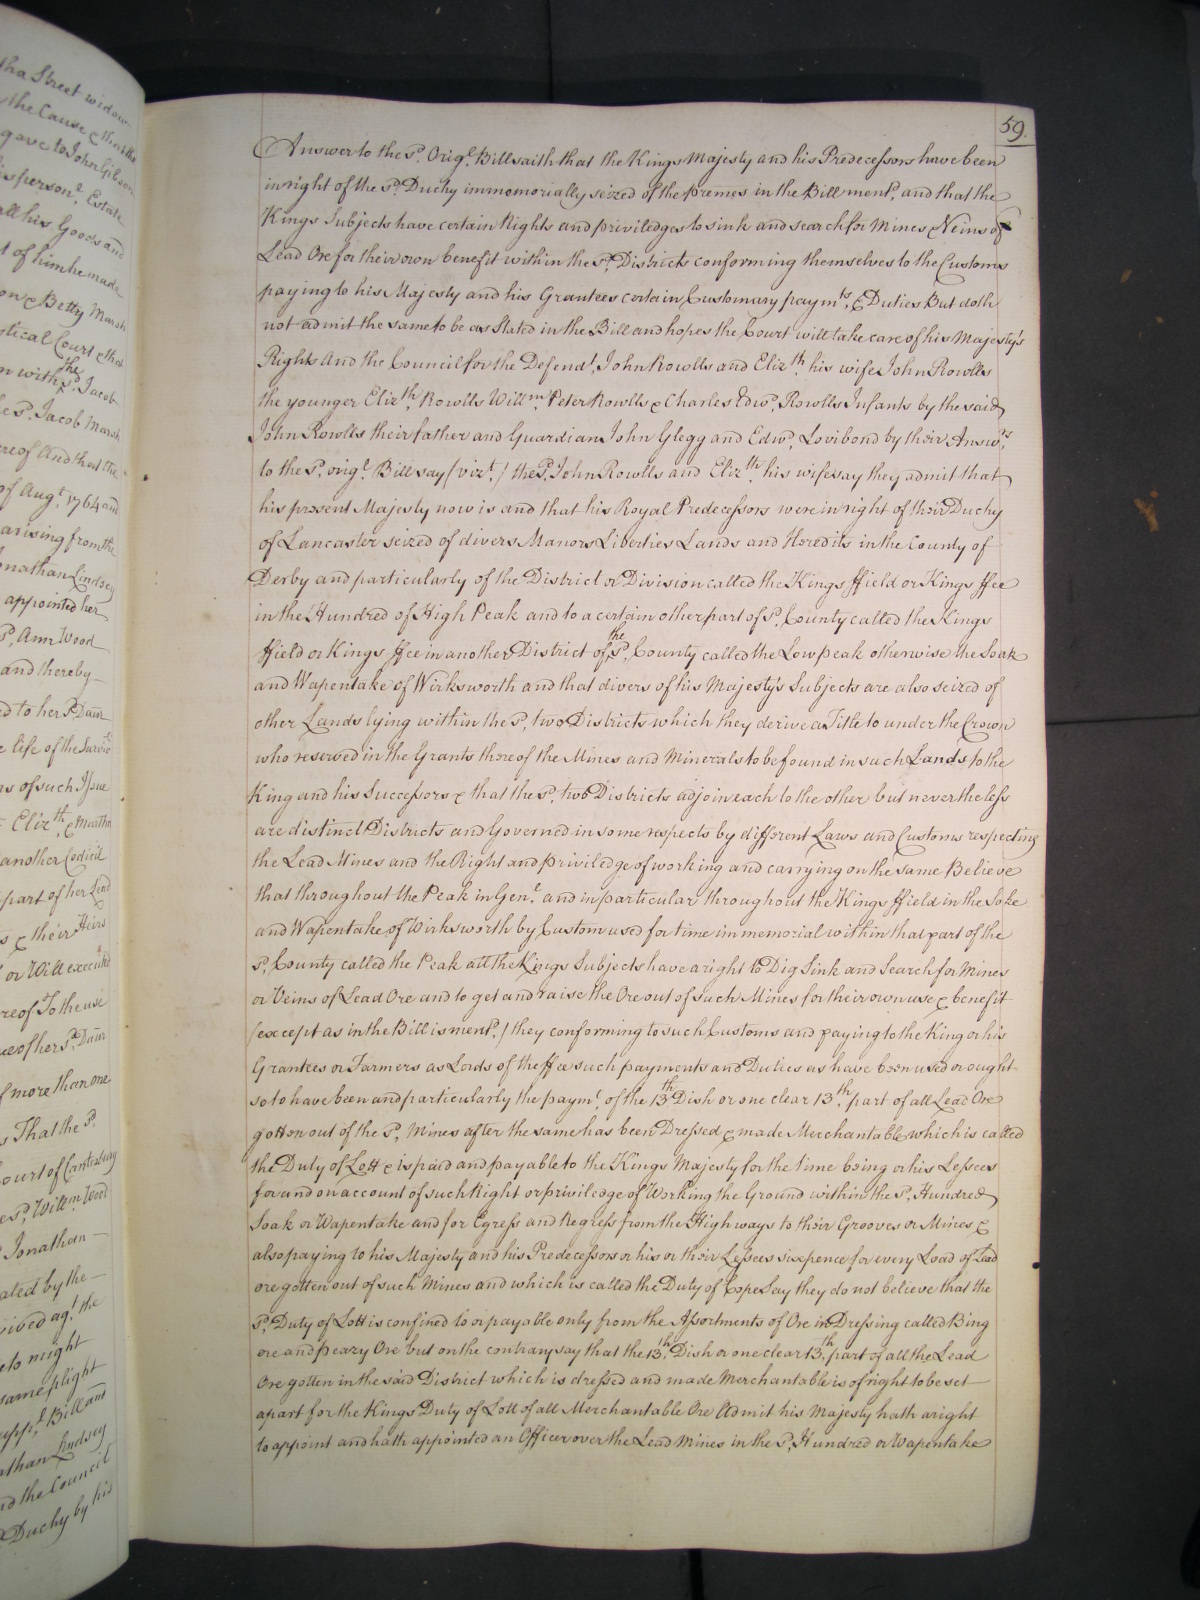 59.
Answer to the sd. Origl. Bill saith that the Kings Majesty and his Predecessors have been
in right of the sd. Duchy immemorially seized of the premes in the Bill mentd. and that the
Kings Subjects have certain Rights and priviledges to sink and search for Mines & Veins of
Lead Ore for their own benefit within the sd. Districts conforming themselves to the Customs
paying to his Majesty and his Grantees certain Customary paymts. & Duties But doth
not admit the same to be as Stated in the Bill and hopes the Court will take care of his Majesty's
Rights And the Council for the Defendt. John Rowlls and Elizth. his wife John Rowlls
the younger Elizth. Rowlls Willm. Peter Rowlls & Charles Edwd. Rowlls Infants by the said
John Rowlls their father and Guardian John Glegg and Edwd. Lovibond by their Answrs.
to the sd. origl. Bill say (vizt.) the sd. John Rowlls and Elizth. his wife say they admit that
his present Majesty now is and that his Royal Predecessors were in right of their Duchy
of Lancaster seized of divers Manors Liberties Lands and Heredits in the County of
Derby and particularly of the District or Division called the Kings ffield or Kings ffee
in the Hundred of High Peak and to a certain other part of sd. County called the Kings
ffield or Kings ffee in another District of the sd. County called the Low peak otherwise the Soak
and Wapentake of Wirksworth and that divers of his Majesty's Subjects are also seized of
other Lands lying within the sd. two Districts which they derive a Title to under the Crown
who reserved in the Grants thereof the Mines and Minerals to be found in such Lands to the
King and his Successors & that the sd. two Districts adjoin each to the other but nevertheless
are distinct Districts and Governed in some respects by different Laws and Customs respecting
the Lead Mines and the Right and priviledge of working and carrying on the same Believe
that throughout the Peak in Genl. and in particular throughout the Kings ffield in the Soke
and Wapentake of Wirksworth by Custom used for time immemorial within that part of the
sd. County called the Peak all the Kings Subjects have a right to Dig Sink and Search for Mines
or Veins of Lead Ore and to get and raise the Ore out of such Mines for their own use & benefit
(except as in the Bill is mentd.) they conforming to such Customs and paying to the King or his
Grantees or Farmers as Lords of the ffee such payments and Duties as have been used or ought
so to have been and particularly the paymt. of the 13th Dish or one clear 13th. part of all Lead Ore
gotton out of the sd. Mines after the same has been Dressed & made Merchantable which is called
the Duty of Lott & is paid and payable to the Kings Majesty for the time being or his Lessees
for and on account of such Right or priviledge of Working the Ground within the sd. Hundred
Soak or Wapentake and for Egress and Regress from the Highways to their Grooves or Mines &
also paying to his Majesty and his Predecessors or his or their Lessees sixpence for every Load of Lead
ore gotten out of such Mines and which is called the Duty of Cope Say they do not believe that the
sd. Duty of Lott is confined to or payable only from the Assortments of Ore in Dressing called Bing
ore and peazy Ore but on the contrary say that the 13th. Dish or one clear 13th. part of all the Lead
Ore gotten in the said District which is dressed and made Merchantable is of right to be set
apart for the Kings Duty of Lott of all Merchantable Ore Admit his Majesty hath a right
to appoint and hath appointed an Officer over the Lead Mines in the sd. Hundred or Wapentake